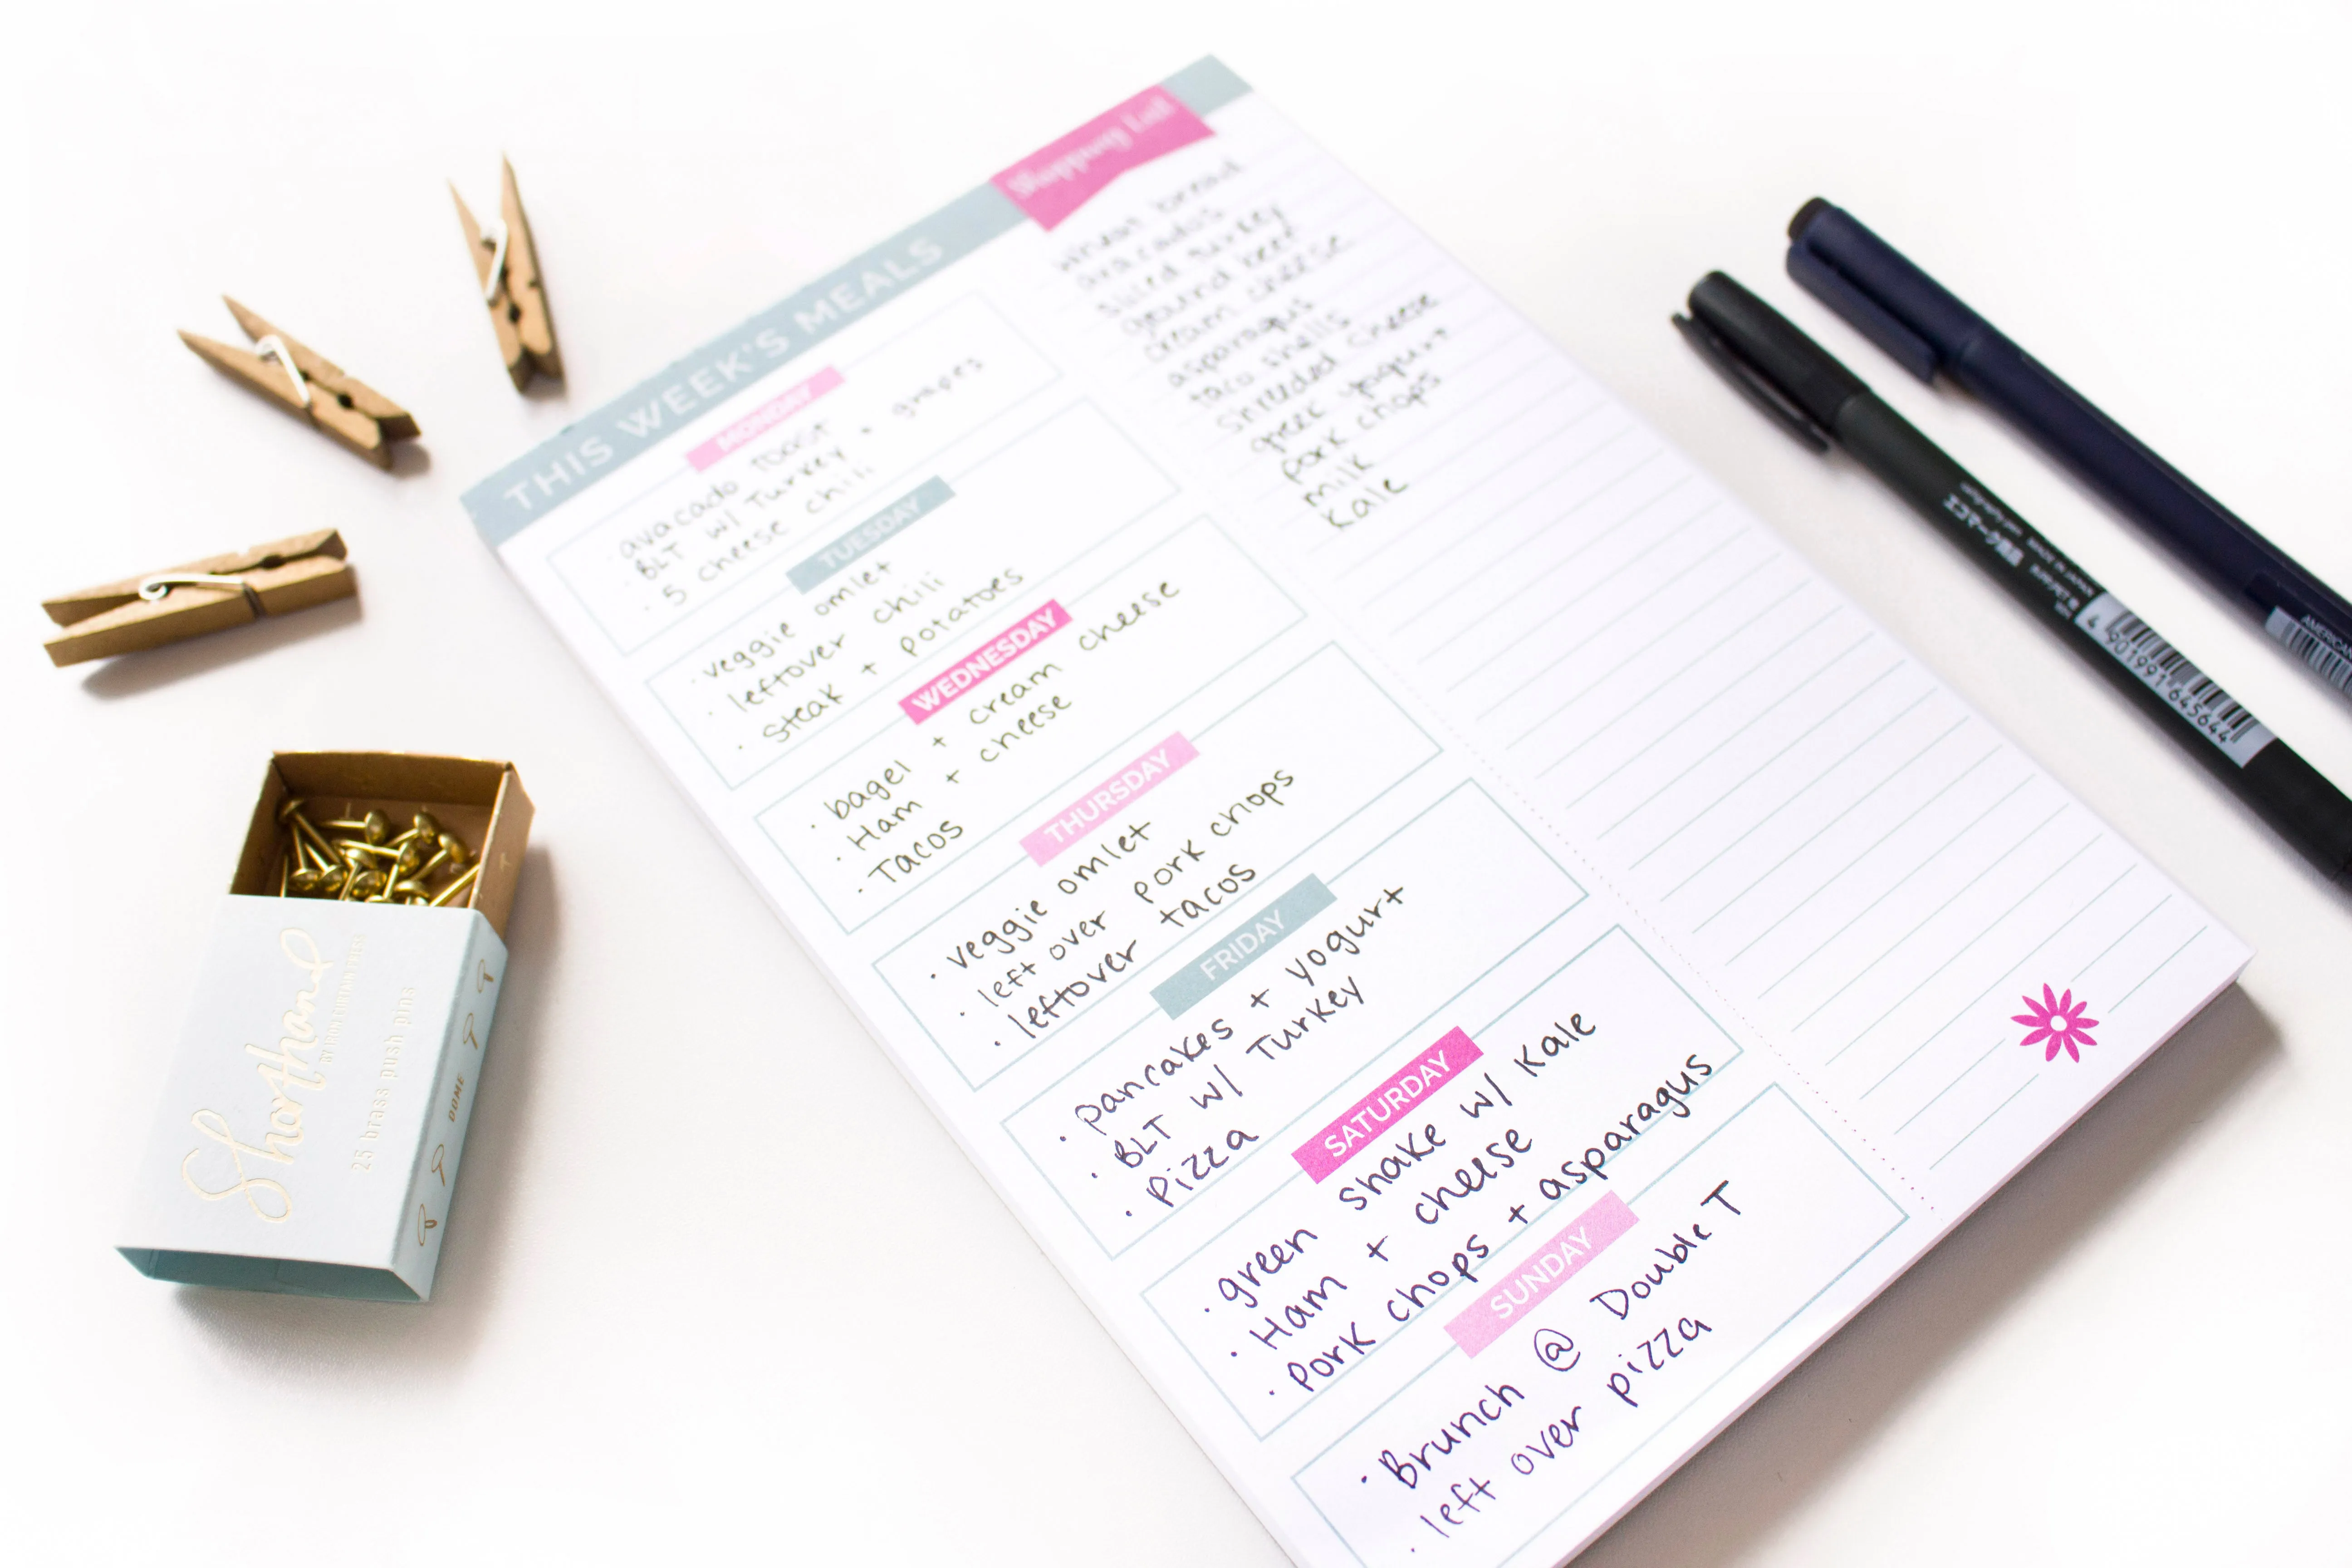 THIS WEEK'S MEALS
Shopping List
MONDAY
· avacado toast
· BLT w/ Turkey + grapes
· 5 cheese chili
TUESDAY
· veggie omlet
· leftover chili
· steak + potatoes
WEDNESDAY
· bagel + cream cheese
· Ham + cheese
· Tacos
THURSDAY
· veggie omlet
· left over pork chops
· leftover tacos
FRIDAY
· pancakes + yogurt
· BLT w/ Turkey
· Pizza
SATURDAY
· green shake w/ Kale
· Ham + cheese
· Pork chops + asparagus
SUNDAY
· Brunch @ Double T
· left over pizza
wheat bread
avacados
sliced turkey
ground beef
cream cheese
asparagus
taco shells
shreeded cheese
greek yogurt
pork chops
milk
Kale
Shorthand
25 brass push pins
DOME
エコマーク商品
4 901991 645644
AMERICAN